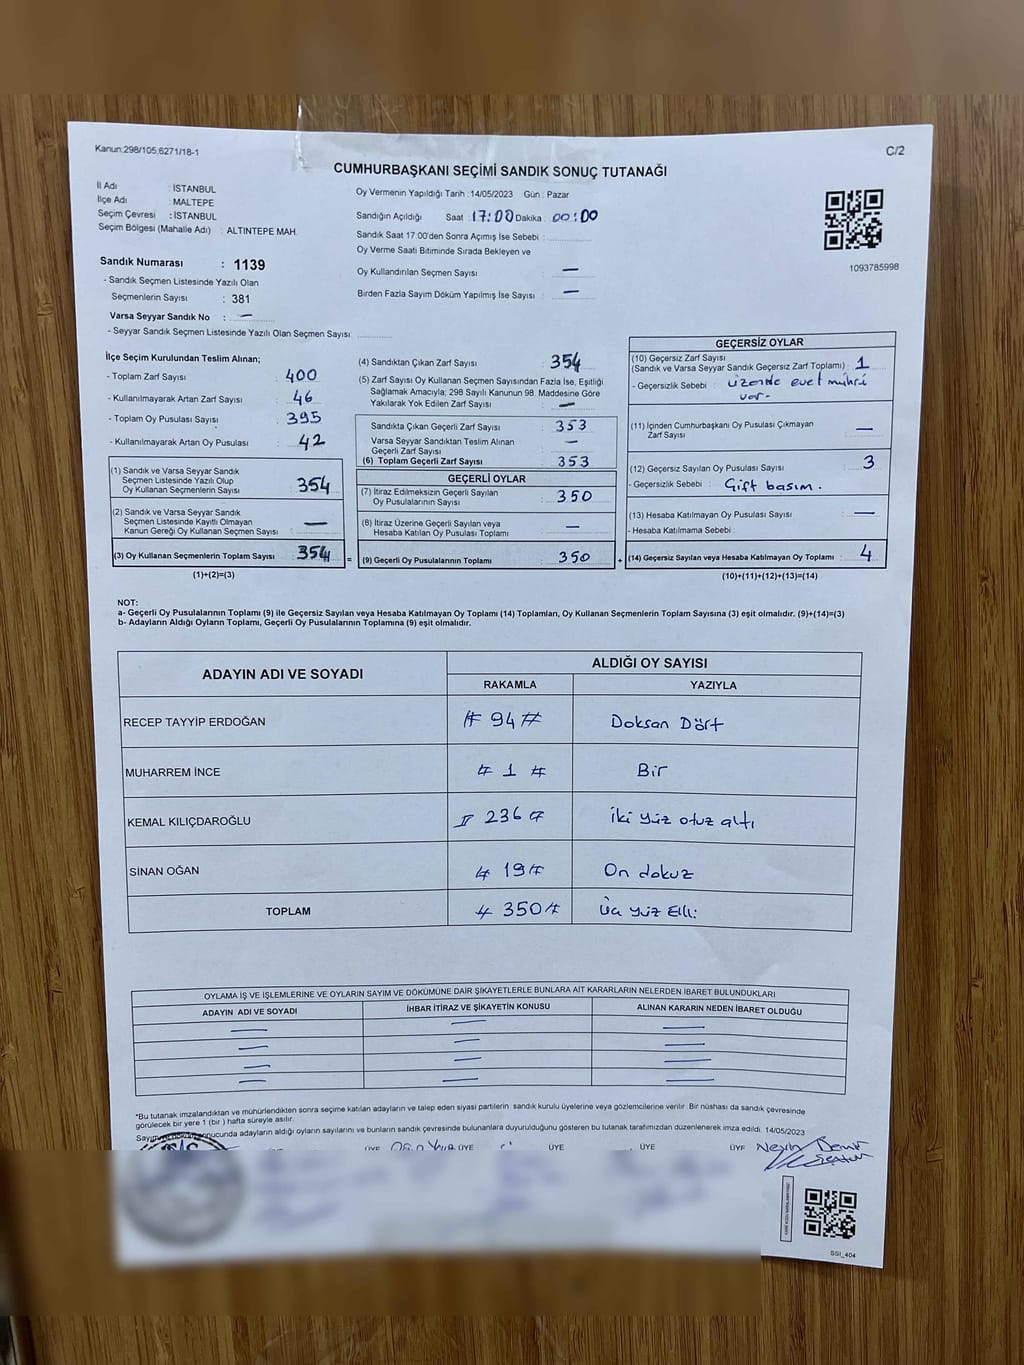 Kanun:298/105,6271/18-1
C/2
CUMHURBAŞKANI SEÇİMİ SANDIK SONUÇ TUTANAĞI
İl Adı : İSTANBUL
İlçe Adı : MALTEPE
Seçim Çevresi : İSTANBUL
Seçim Bölgesi (Mahalle Adı) : ALTINTEPE MAH.
Sandık Numarası : 1139
- Sandık Seçmen Listesinde Yazılı Olan
Seçmenlerin Sayısı : 381
Varsa Seyyar Sandık No : —
- Seyyar Sandık Seçmen Listesinde Yazılı Olan Seçmen Sayısı:
Oy Vermenin Yapıldığı Tarih : 14/05/2023 Gün : Pazar
Sandığın Açıldığı Saat : 17:00 Dakika : 00:00
Sandık Saat 17:00'den Sonra Açımış İse Sebebi :
Oy Verme Saati Bitiminde Sırada Bekleyen ve
Oy Kullandırılan Seçmen Sayısı : —
Birden Fazla Sayım Döküm Yapılmış İse Sayısı : —
1093785998
İlçe Seçim Kurulundan Teslim Alınan;
- Toplam Zarf Sayısı : 400
- Kullanılmayarak Artan Zarf Sayısı : 46
- Toplam Oy Pusulası Sayısı : 395
- Kullanılmayarak Artan Oy Pusulası : 42
(1) Sandık ve Varsa Seyyar Sandık
Seçmen Listesinde Yazılı Olup
Oy Kullanan Seçmenlerin Sayısı : 354
(2) Sandık ve Varsa Seyyar Sandık
Seçmen Listesinde Kayıtlı Olmayan
Kanun Gereği Oy Kullanan Seçmen Sayısı : —
(3) Oy Kullanan Seçmenlerin Toplam Sayısı : 354 =
(1)+(2)=(3)
(4) Sandıktan Çıkan Zarf Sayısı : 354
(5) Zarf Sayısı Oy Kullanan Seçmen Sayısından Fazla İse, Eşitliği
Sağlamak Amacıyla; 298 Sayılı Kanunun 98. Maddesine Göre
Yakılarak Yok Edilen Zarf Sayısı : —
Sandıkta Çıkan Geçerli Zarf Sayısı : 353
Varsa Seyyar Sandıktan Teslim Alınan
Geçerli Zarf Sayısı : —
(6) Toplam Geçerli Zarf Sayısı : 353
GEÇERLİ OYLAR
(7) İtiraz Edilmeksizin Geçerli Sayılan
Oy Pusulalarının Sayısı : 350
(8) İtiraz Üzerine Geçerli Sayılan veya
Hesaba Katılan Oy Pusulaları Toplamı : —
(9) Geçerli Oy Pusulalarının Toplamı : 350 +
GEÇERSİZ OYLAR
(10) Geçersiz Zarf Sayısı
(Sandık ve Varsa Seyyar Sandık Geçersiz Zarf Toplamı) : 1
- Geçersizlik Sebebi : üzerinde evet mührü
var.
(11) İçinden Cumhurbaşkanı Oy Pusulası Çıkmayan
Zarf Sayısı : —
(12) Geçersiz Sayılan Oy Pusulası Sayısı : 3
- Geçersizlik Sebebi : Çift basım.
(13) Hesaba Katılmayan Oy Pusulası Sayısı : —
- Hesaba Katılmama Sebebi :
(14) Geçersiz Sayılan veya Hesaba Katılmayan Oy Toplamı : 4
(10)+(11)+(12)+(13)=(14)
NOT:
a- Geçerli Oy Pusulalarının Toplamı (9) ile Geçersiz Sayılan veya Hesaba Katılmayan Oy Toplamı (14) Toplamları, Oy Kullanan Seçmenlerin Toplam Sayısına (3) eşit olmalıdır. (9)+(14)=(3)
b- Adayların Aldığı Oyların Toplamı, Geçerli Oy Pusulalarının Toplamına (9) eşit olmalıdır.
ADAYIN ADI VE SOYADI ALDIĞI OY SAYISI
RAKAMLA YAZIYLA
RECEP TAYYİP ERDOĞAN # 94 # Doksan Dört
MUHARREM İNCE # 1 # Bir
KEMAL KILIÇDAROĞLU # 236 # İki yüz otuz altı
SİNAN OĞAN # 19 # On dokuz
TOPLAM # 350 # Üç yüz Elli
OYLAMA İŞ VE İŞLEMLERİNE VE OYLARIN SAYIM VE DÖKÜMÜNE DAİR ŞİKAYETLERLE BUNLARA AİT KARARLARIN NELERDEN İBARET BULUNDUKLARI
ADAYIN ADI VE SOYADI İHBAR İTİRAZ VE ŞİKAYETİN KONUSU ALINAN KARARIN NEDEN İBARET OLDUĞU
— — —
— — —
— — —
— — —
*Bu tutanak imzalandıktan ve mühürlendikten sonra seçime katılan adayların ve talep eden siyasi partilerin sandık kurulu üyelerine veya gözlemcilerine verilir. Bir nüshası da sandık çevresinde
görülecek bir yere 1 (bir) hafta süreyle asılır.
sonucunda adayların aldığı oyların sayılarını ve bunların sandık çevresinde bulunanlara duyurulduğunu gösteren bu tutanak tarafımızdan düzenlenerek imza edildi. 14/05/2023
ÜYE ÜYE ÜYE ÜYE ÜYE
SSI_404